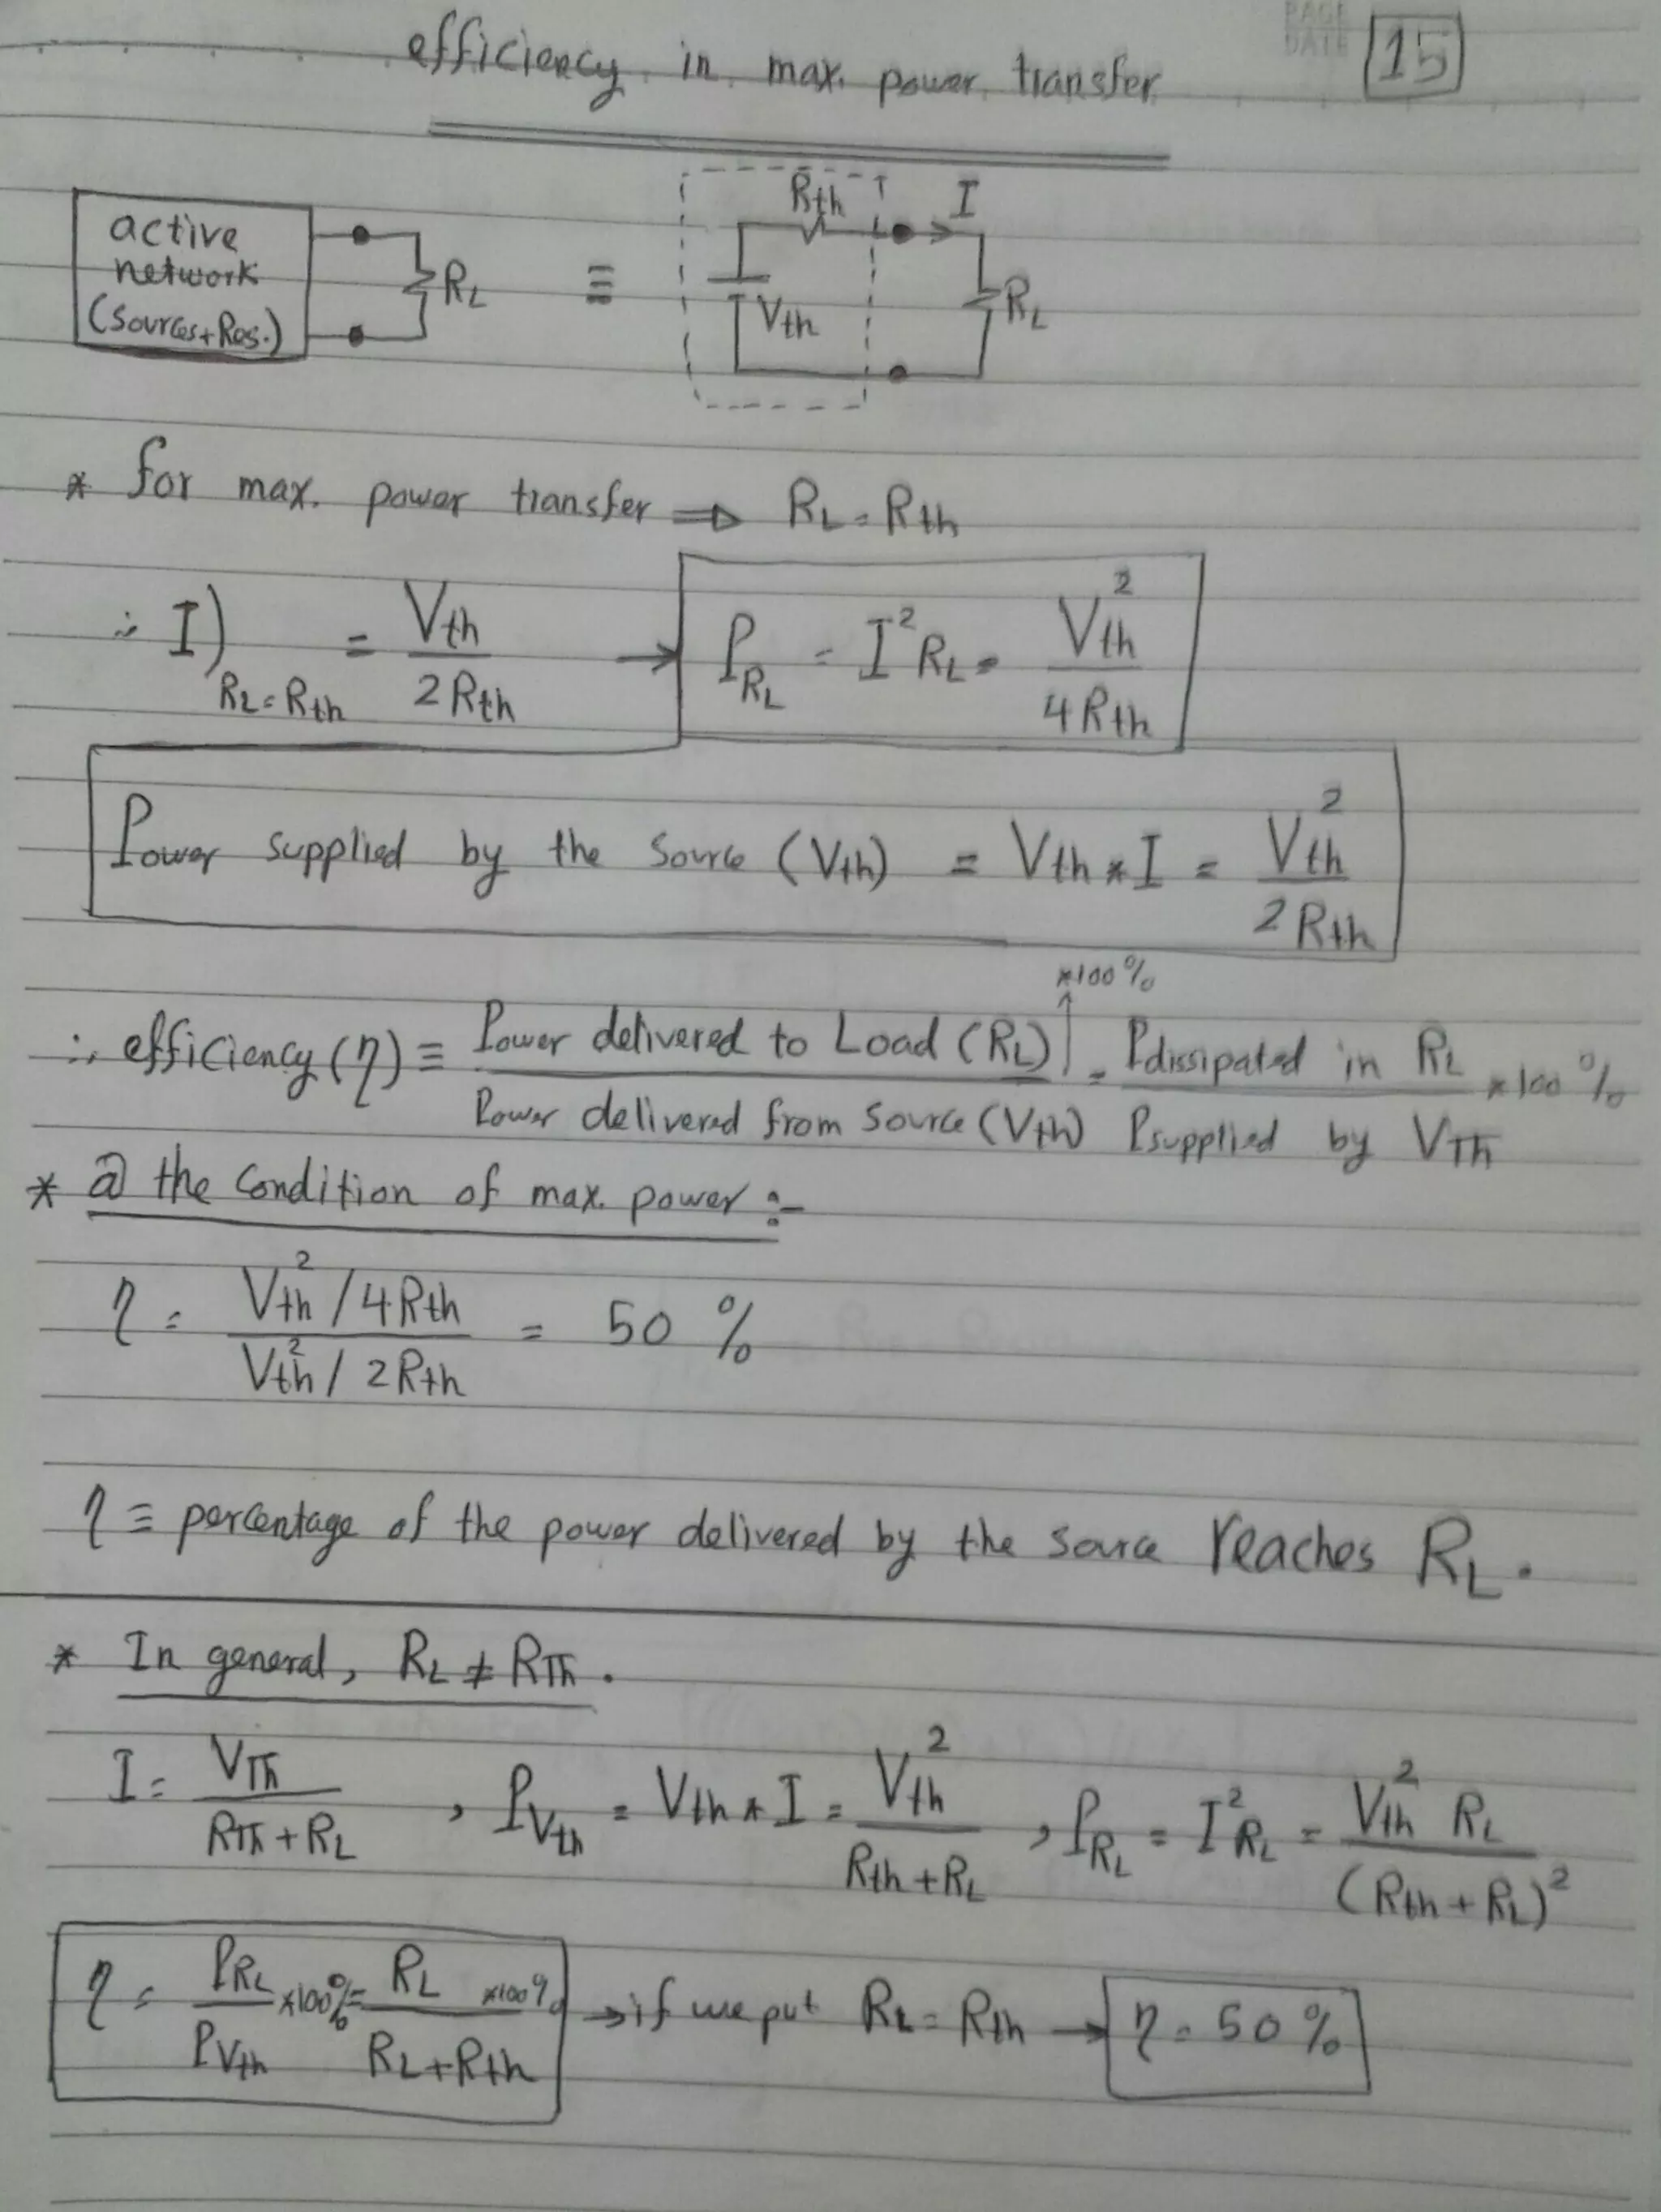 PAGE
DATE
15
efficiency in max. power transfer
active
network
(Sources+Res.)
RL
≡
Rth
I
Vth
RL
* for max. power transfer ⇒ RL = Rth
∴ I)RL=Rth = Vth / 2Rth → PRL = I² RL = Vth² / 4Rth
Power supplied by the Source (Vth) = Vth * I = Vth² / 2Rth
*100%
∴ efficiency (η) ≡ Power delivered to Load (RL) / Power delivered from Source (Vth) = Pdissipated in RL / Psupplied by VTh *100%
* @ the Condition of max. power :-
η = Vth² / 4Rth / Vth² / 2Rth = 50 %
η ≡ percentage of the power delivered by the source reaches RL.
* In general, RL ≠ RTh .
I = VTh / RTh + RL , PVth = Vth * I = Vth² / Rth + RL , PRL = I² RL = Vth² RL / (Rth + RL)²
η = PRL / PVth *100% = RL / RL + Rth *100% → if we put RL = Rth → η = 50 %